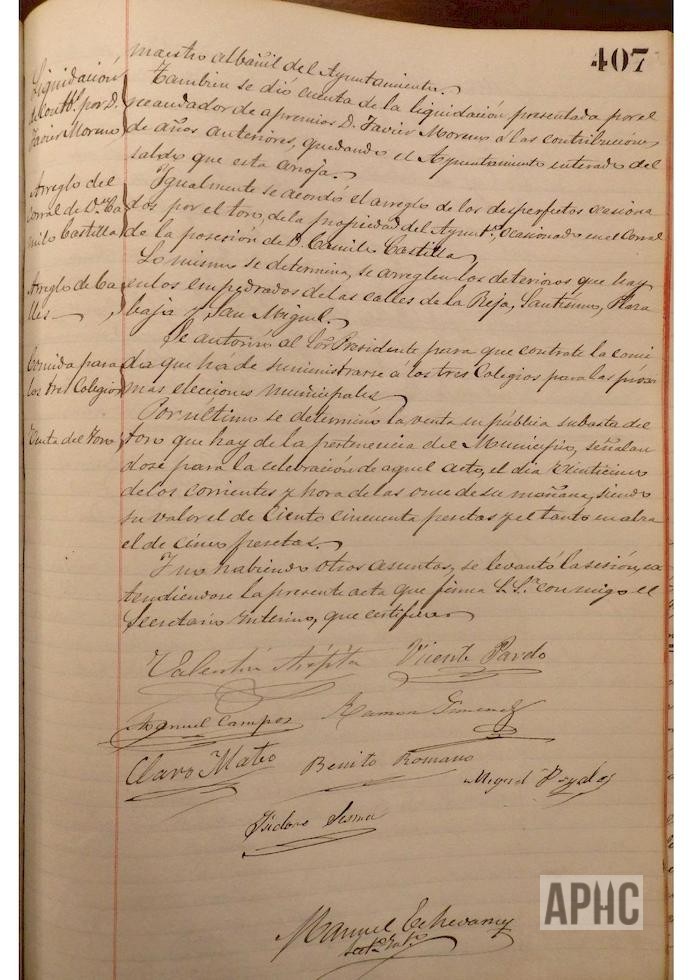 407
maestro albañil del Ayuntamiento.
Liquidación
de Contbs. por D.
Javier Moreno
Tambien se dió cuenta de la liquidación presentada por el
recaudador de apremios D. Javier Moreno á las contribuciones
de años anteriores, quedando el Ayuntamiento enterado del
saldo que esta arroja.
Arreglo del
Corral de D. Ca
milo Castilla
Igualmente se acordó el arreglo de los desperfectos ocasiona
dos por el toro, de la propiedad del Ayuntto. ocasionado en el Corral
de la posesión de D. Camilo Castilla.
Arreglo de Ca
lles
Lo mismo se determina, se arreglen los deterioros que hay
en los empedrados de las calles de la Reja, Santisimo, Plaza
baja y San Miguel.
Comida para
los tres Colegios
Se autorizó al Sor. Presidente para que contrate la comi
da que há de suministrarse á los tres Colegios para las próxi
mas elecciones municipales.
Venta del Toro
Por ultimo se determinó la venta en pública subasta del
toro que hay de la pertenencia del Municipio, señalan
dose para la celebración de aquel acto, el dia veinticinco
de los corrientes y hora de las once de su mañana, siendo
su valor el de ciento cincuenta pesetas y el tanto en alza
el de cinco pesetas.
Y no habiendo otros asuntos, se levantó la sesión, ex
tendiendose la presente acta que firma S.Sa. conmigo el
Secretario Interino, que certifico
Valentin Vicente Pardo
Manuel Campos Ramon Gimenez
Claro Mateo Benito Romano Miguel
Isidoro Sesma
Manuel Echevarria
Secto. Into.
APHC